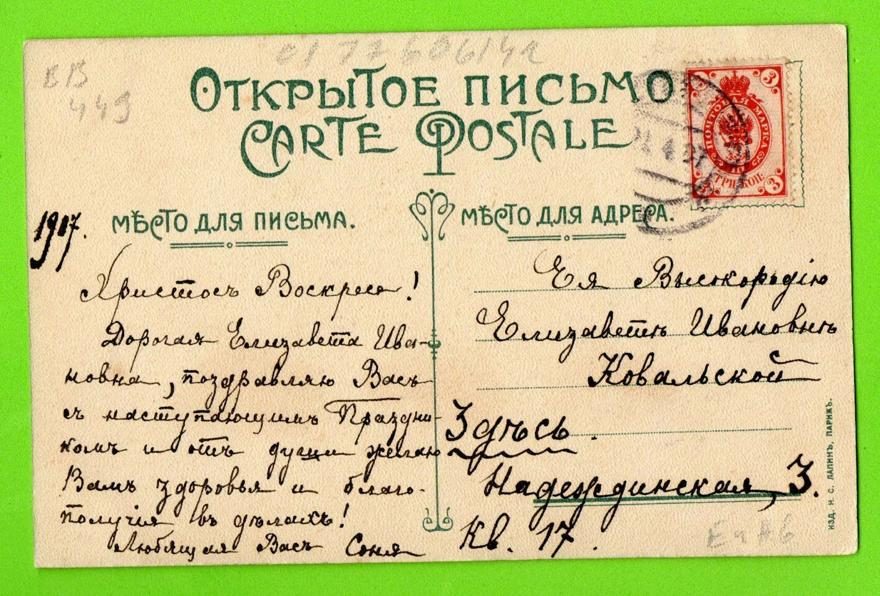 01 77 606142
ВВ
449
ОТКРЫТОЕ ПИСЬМО
CARTE POSTALE
3
ПОЧТОВАЯ МАРКА
ТРИ КОП.
3
1917.
МѢСТО ДЛЯ ПИСЬМА.
Христосъ Воскресе!
Дорогая Елизавета Ива-
новна, поздравляю Васъ
съ наступающимъ Праздни-
комъ и отъ души желаю
Вамъ здоровья и благо-
получія въ дѣлахъ!
Любящая Васъ Соня
МѢСТО ДЛЯ АДРЕСА.
Ея Высокородію
Елизаветѣ Ивановнѣ
Ковальской
Здѣсь.
Надеждинская, 3.
Кв. 17.
ИЗД. И. С. ЛАПИНЪ, ПАРИЖЪ.